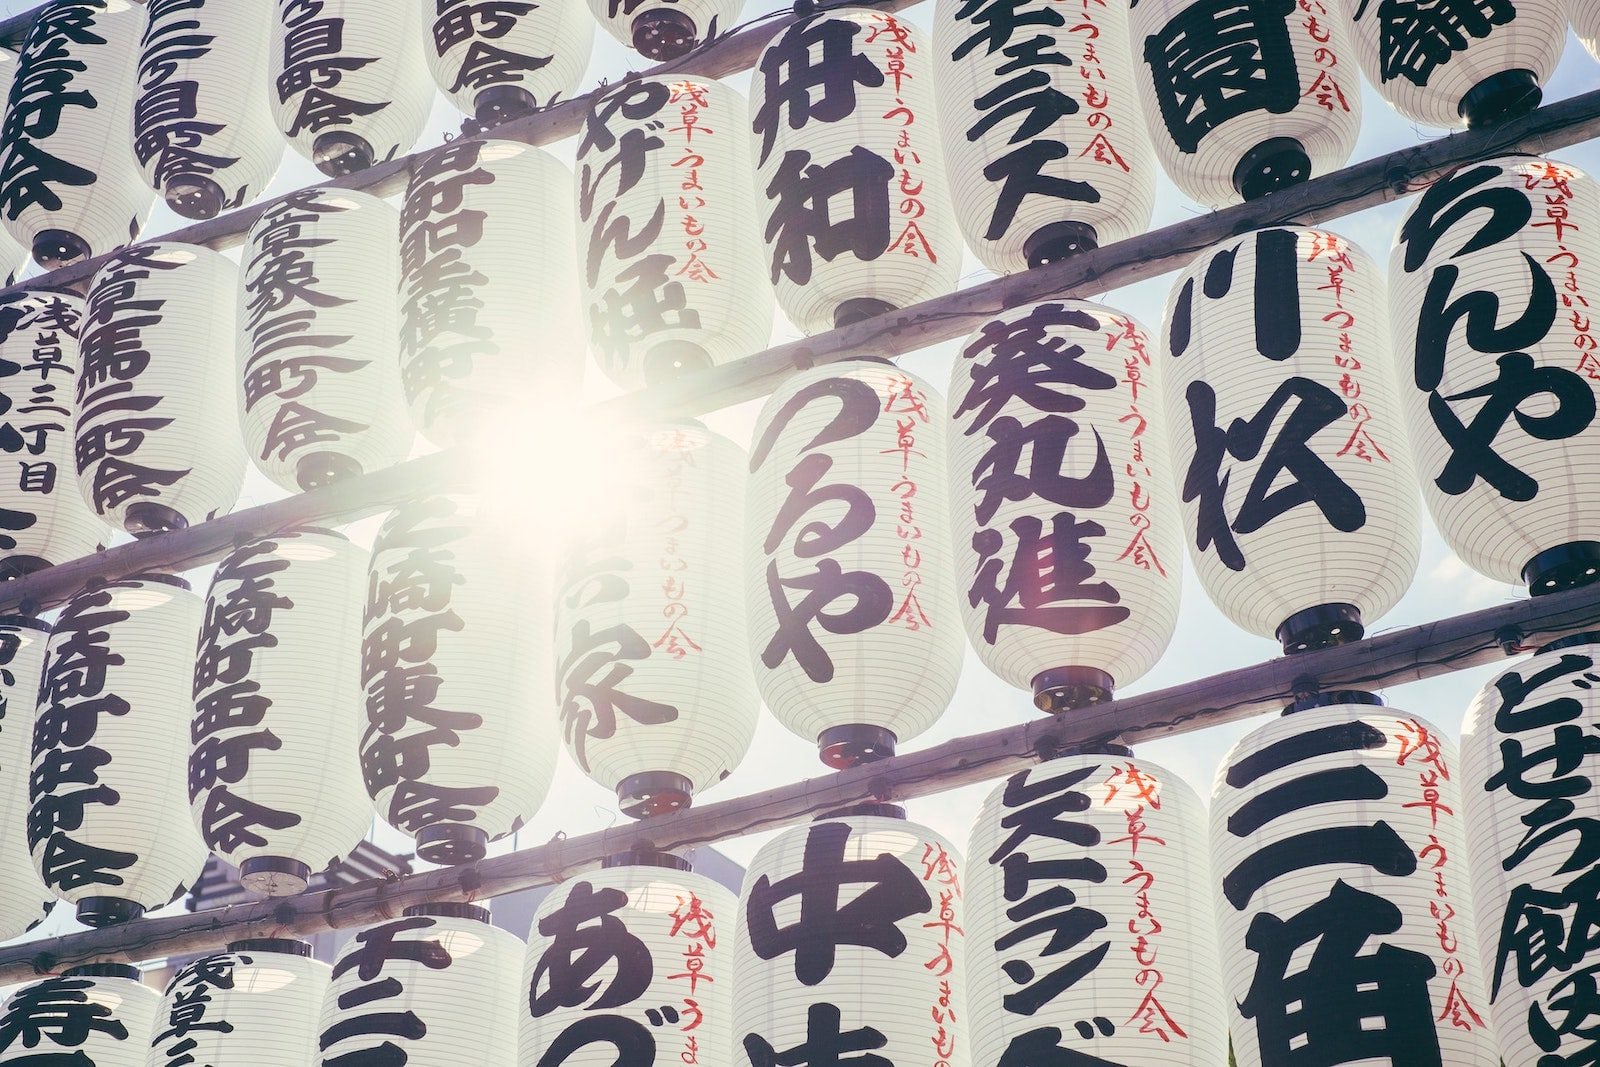 町会
二丁目町会
目町会
町会
舟和
浅草うまいもの会
チェラス
うまいもの会
園
いもの会
やげん堀
浅草うまいもの会
浅草三丁目
浅草馬二町会
浅草象三町会
ちんや
浅草うまいもの会
川松
浅草うまいもの会
葵丸進
浅草うまいもの会
つるや
浅草うまいもの会
家
浅草うまいもの会
芝崎町中町会
芝崎町西町会
芝崎町東町会
寿
浅草三
千二
あづ
浅草うま
中清
浅草うまいも
ストラング
浅草うまいもの会
三角
浅草うまいもの会
どぜう飯田